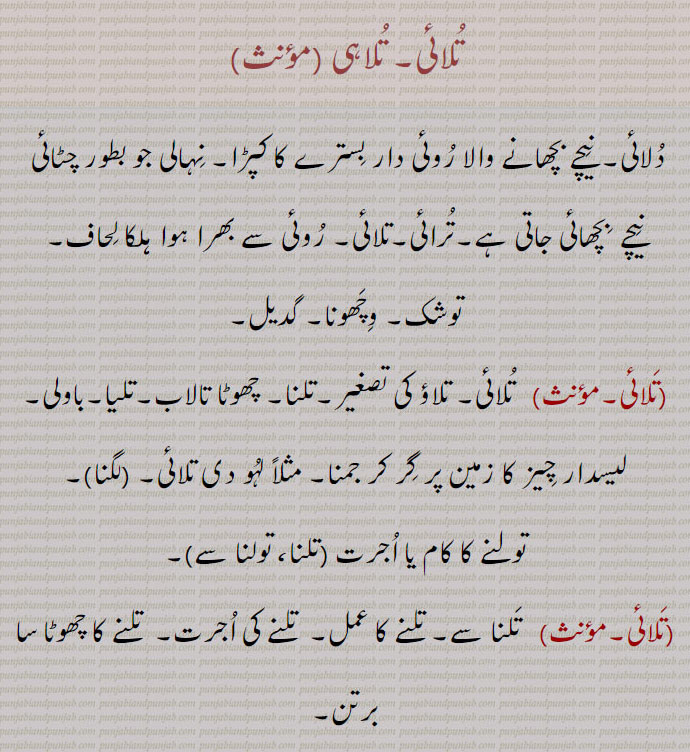 تُلائی۔ تُلاہی (مؤنث)
دُلائی۔نیچے بچھانے والا رُوئی دار بِسترے کا کپڑا۔ نِہالی جو بطور چٹائی
نیچے بِچھائی جاتی ہے۔تُرائی۔تلائی۔ رُوئی سے بھرا ہوا ہلکا لِحاف۔
توشک۔ وِچَھونا۔ گدیل۔
(تَلائی۔مؤنث) تُلائی۔ تلاؤ کی تصغیر۔تلنا۔ چھوٹا تالاب۔تلیا۔باولی۔
لیسدار چِیز کا زمین پر گِر کر جمنا۔ مثلاً لہُو دی تلائی۔ (لگنا)۔
تولنے کا کام یا اُجرت (تلنا، تولنا سے)۔
(تَلائی۔مؤنث) تَلنا سے۔ تلنے کا عمل۔ تلنے کی اُجرت۔ تلنے کا چھوٹا سا
برتن۔